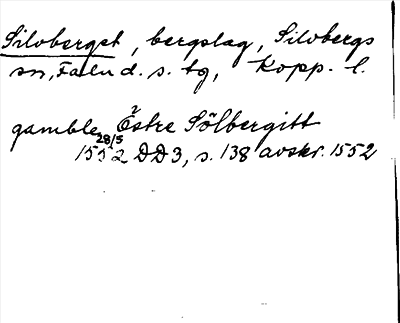 Silvberget, bergslag, Silvbergs
sn, Falu d. s. tg, Kopp. l.
gamble Östre Sölbergitt
28/5
1552 DD3, s. 138 avskr. 1552